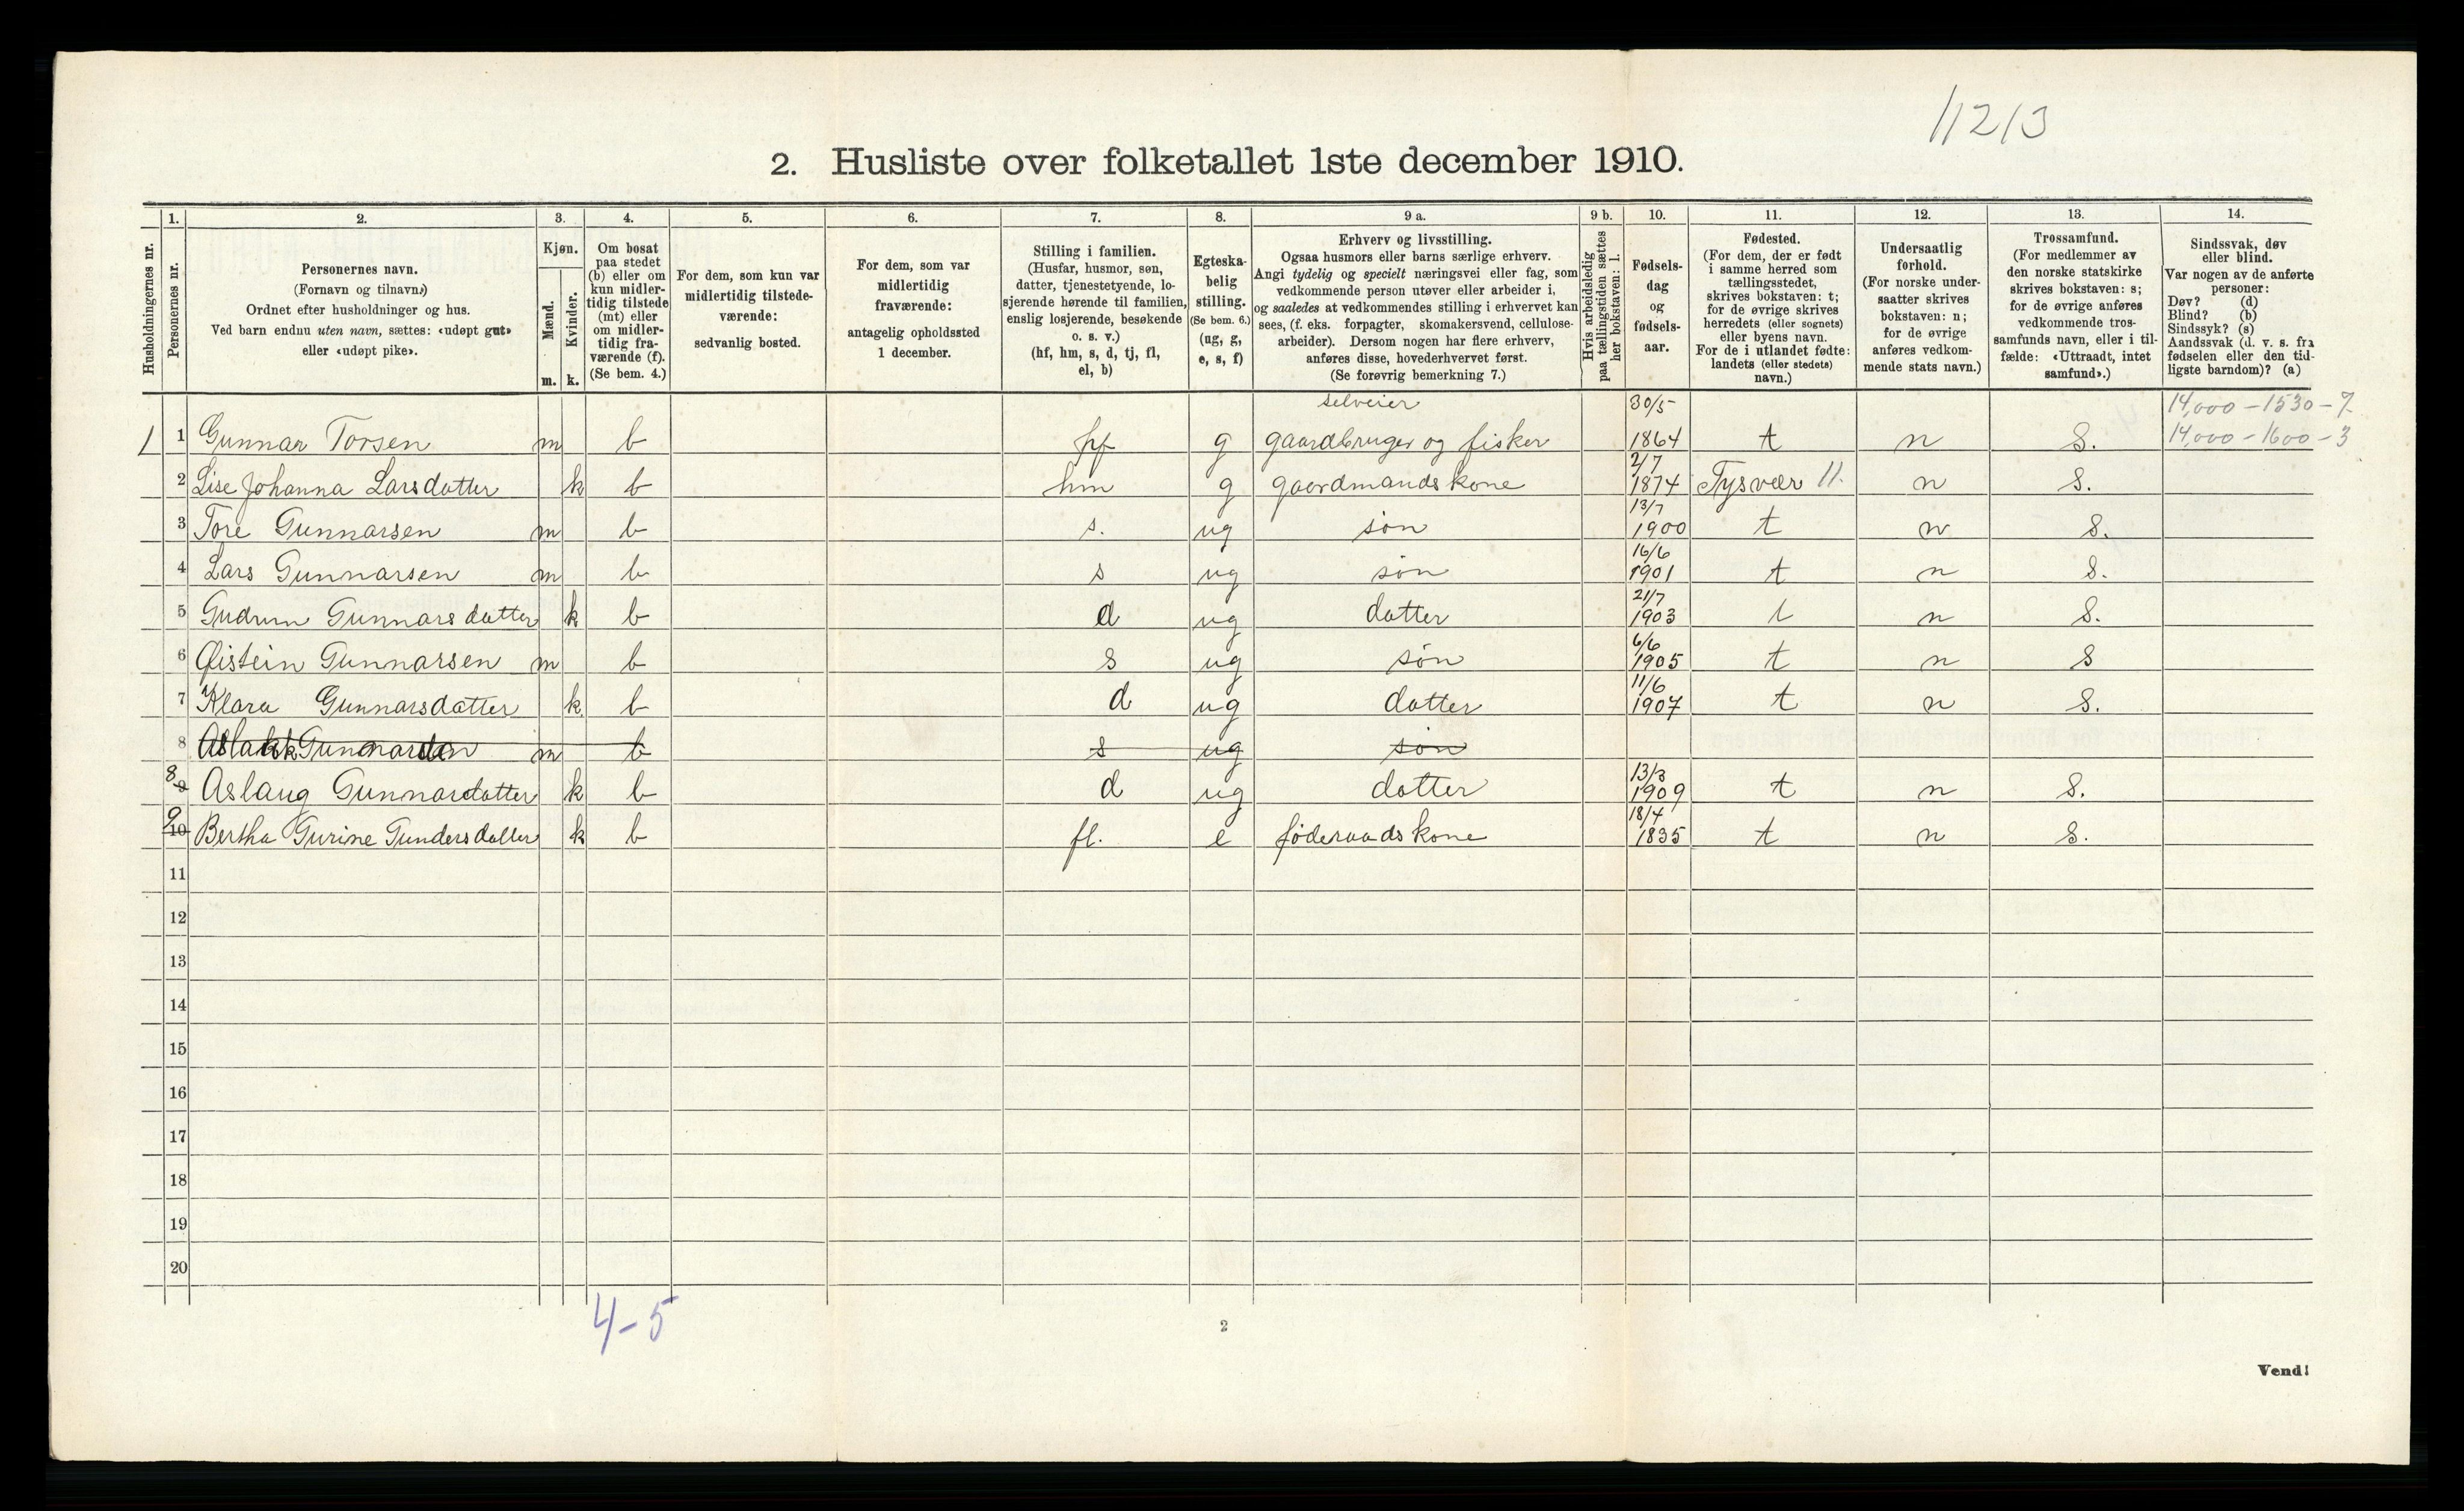 11213
2. Husliste over folketallet 1ste december 1910.
Husholdningernes nr.
1.
Personernes nr.
2.
Personernes navn.
(Fornavn og tilnavn.)
Ordnet efter husholdninger og hus.
Ved barn endnu uten navn, sættes: «udøpt gut»
eller «udøpt pike».
3.
Kjøn.
Mænd.
Kvinder.
m. k.
4.
Om bosat
paa stedet
(b) eller om
kun midler-
tidig tilstede
(mt) eller
om midler-
tidig fra-
værende (f).
(Se bem. 4.)
5.
For dem, som kun var
midlertidig tilstede-
værende:
sedvanlig bosted.
6.
For dem, som var
midlertidig
fraværende:
antagelig opholdssted
1 december.
7.
Stilling i familien.
(Husfar, husmor, søn,
datter, tjenestetyende, lo-
sjerende hørende til familien,
enslig losjerende, besøkende
o. s. v.)
(hf, hm, s, d, tj, fl,
el, b)
8.
Egteska-
belig
stilling.
(Se bem. 6.)
(ug, g,
e, s, f)
9 a.
Erhverv og livsstilling.
Ogsaa husmors eller barns særlige erhverv.
Angi tydelig og specielt næringsvei eller fag, som
vedkommende person utøver eller arbeider i,
og saaledes at vedkommendes stilling i erhvervet kan
sees, (f. eks. forpagter, skomakersvend, cellulose-
arbeider). Dersom nogen har flere erhverv,
anføres disse, hovederhvervet først.
(Se forøvrig bemerkning 7.)
9 b.
Hvis arbeidsledig
paa tællingstiden sættes
her bokstaven: l.
10.
Fødsels-
dag
og
fødsels-
aar.
11.
Fødested.
(For dem, der er født
i samme herred som
tællingsstedet,
skrives bokstaven: t;
for de øvrige skrives
herredets (eller sognets)
eller byens navn.
For de i utlandet fødte:
landets (eller stedets)
navn.)
12.
Undersaatlig
forhold.
(For norske under-
saatter skrives
bokstaven: n;
for de øvrige
anføres vedkom-
mende stats navn.)
13.
Trossamfund.
(For medlemmer av
den norske statskirke
skrives bokstaven: s;
for de øvrige anføres
vedkommende tros-
samfunds navn, eller i til-
fælde: «Uttraadt, intet
samfund».)
14.
Sindssvak, døv
eller blind.
Var nogen av de anførte
personer:
Døv? (d)
Blind? (b)
Sindssyk? (s)
Aandssvak (d. v. s. fra
fødselen eller den tid-
ligste barndom)? (a)
selveier 30/5 14,000 - 1530 - 7
1 1 Gunnar Torsen m b hf g gaardbruger og fisker 1864 t n S. 14,000 - 1600 - 3
2 Lise Johanna Larsdatter k b hm g gaardmandskone 2/7 1874 Tysvær 11. n S.
3 Tore Gunnarsen m b s. ug søn 13/7 1900 t n S.
4 Lars Gunnarsen m b s ug søn 16/6 1901 t n S.
5 Gudrun Gunnarsdatter k b d ug datter 21/7 1903 t n S.
6 Øistein Gunnarsen m b s ug søn 6/6 1905 t n S
7 Klara Gunnarsdatter k b d ug datter 11/6 1907 t n S.
8 Aslak Gunnarsen m b s ug søn
8 9 Aslaug Gunnarsdatter k b d ug datter 13/3 1909 t n S.
9 10 Bertha Gurine Gundersdatter k b fl. e føderaadskone 18/4 1835 t n S.
11
12
13
14
15
16
17
18
19
20
4-5
2
Vend!